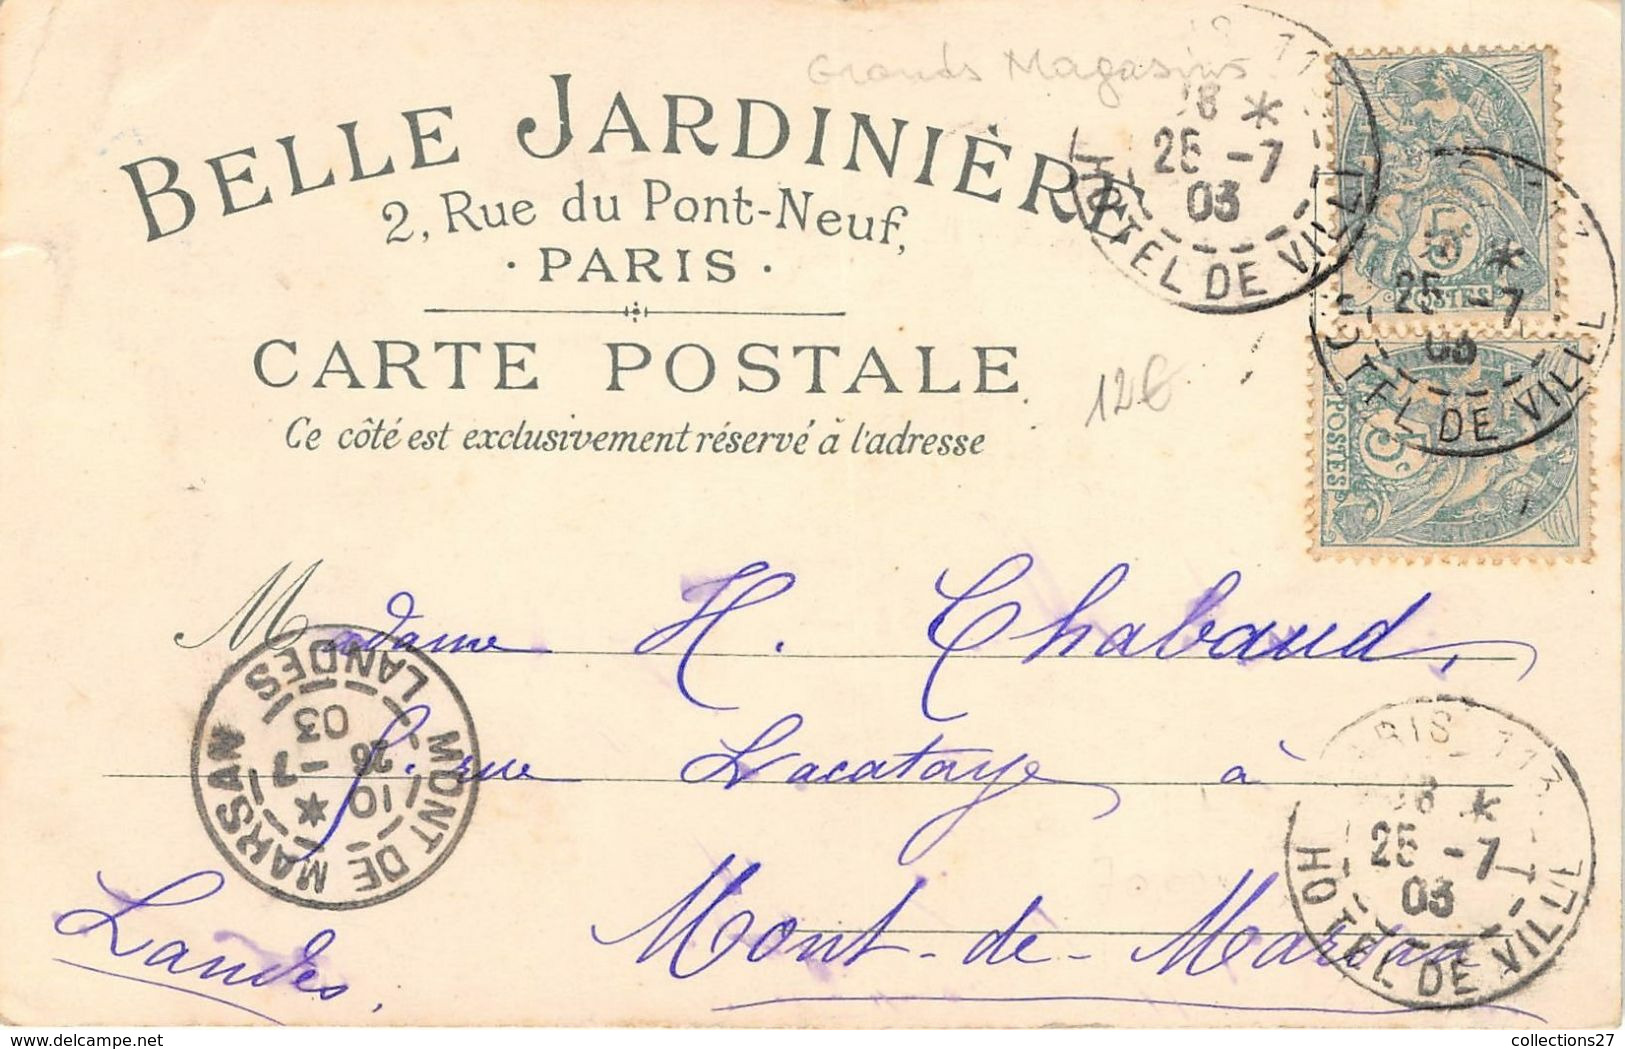 Grands Magasins
BELLE JARDINIÈRE
2, Rue du Pont-Neuf,
· PARIS ·
CARTE POSTALE
Ce côté est exclusivement réservé à l'adresse
12€
18 *
25 -7
03
HOTEL DE VILLE
5c
POSTES
25 -7
03
HOTEL DE VILLE
5c
POSTES
Madame H. Chabaud,
rue Lacataye à
Mont-de-Marsan
Landes.
MONT DE MARSAN
LANDES
10 *
26 -7
03
PARIS 113
18 *
25 -7
03
HOTEL DE VILLE
delcampe.net
collections27